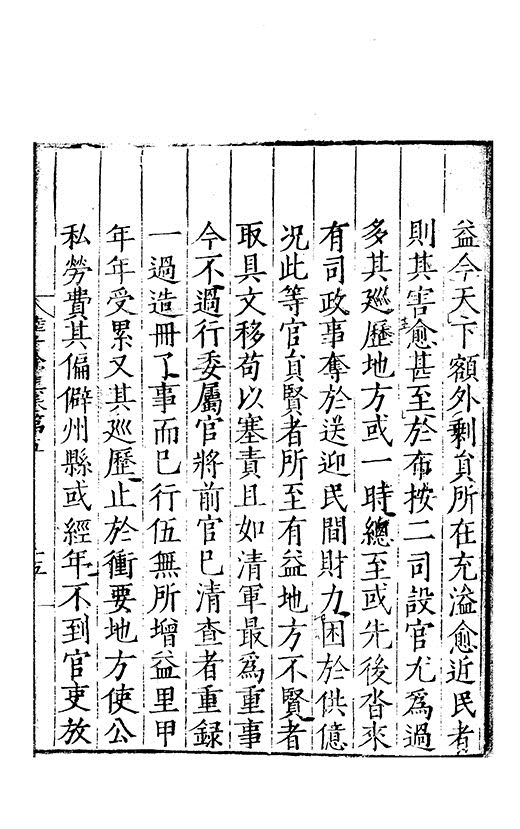 益今天下額外剩貟所在充溢愈近民者
則其害愈甚至於布按二司設官尤爲過
多其廵歷地方或一時總至或先後沓來
有司政事奪於送迎民間財力困於供億
况此等官貟賢者所至有益地方不賢者
取具文移苟以塞責且如清軍最爲重事
今不過行委屬官將前官已清查者重録
一過造冊了事而已行伍無所增益里甲
年年受累又其廵歷止於衝要地方使公
私勞費其偏僻州縣或經年不到官吏放